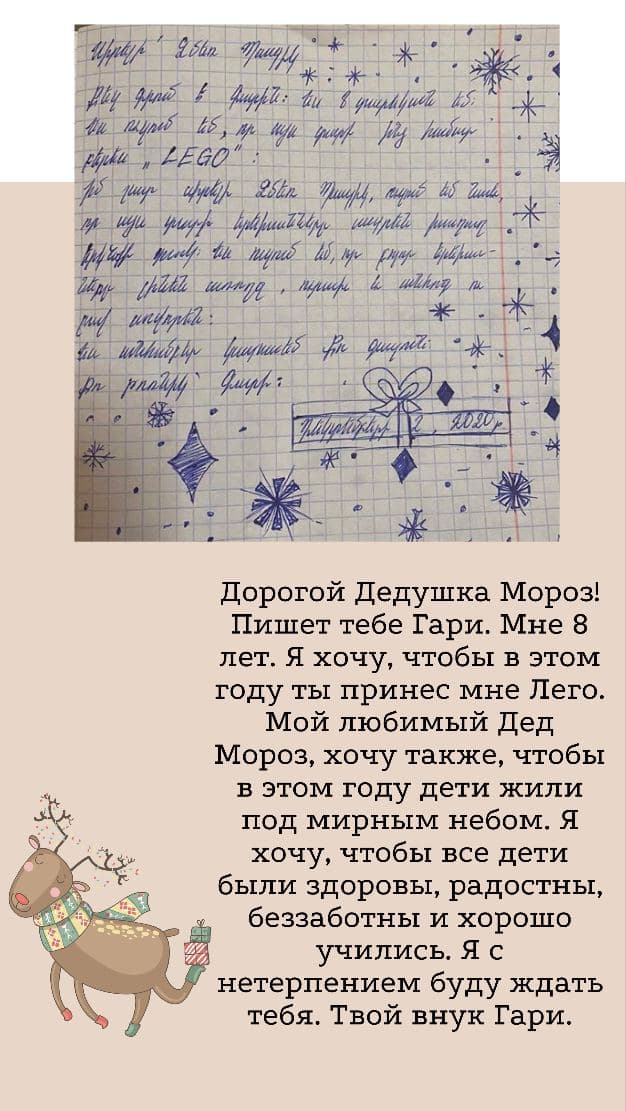 Սիրելի՛ Ձմեռ Պապիկ
Քեզ գրում է Գարին: Ես 8 տարեկան եմ:
Ես ուզում եմ, որ այս տարի ինձ համար
բերես „LEGO":
Իմ շատ սիրելի Ձմեռ Պապիկ, ուզում եմ նաև,
որ այս տարի երեխաները ապրեն խաղաղ
երկնքի տակ: Ես ուզում եմ, որ բոլոր երեխա-
ները լինեն առողջ, ուրախ և անհոգ ու
լավ սովորեն:
Ես անհամբեր կսպասեմ քո գալուն:
Քո թոռնիկ՝ Գարի:
Դեկտեմբերի 2, 2020թ.
Дорогой Дедушка Мороз!
Пишет тебе Гари. Мне 8
лет. Я хочу, чтобы в этом
году ты принес мне Лего.
Мой любимый Дед
Мороз, хочу также, чтобы
в этом году дети жили
под мирным небом. Я
хочу, чтобы все дети
были здоровы, радостны,
беззаботны и хорошо
учились. Я с
нетерпением буду ждать
тебя. Твой внук Гари.